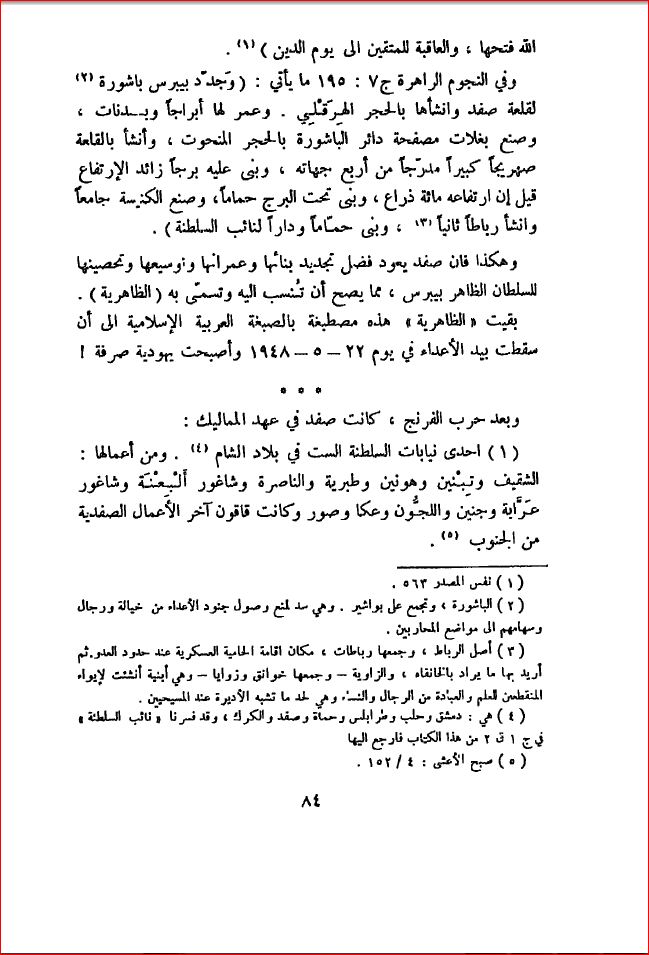 الله فتحها ، والعاقبة للمتقين الى يوم الدين ) (١) .
وفي النجوم الزاهرة ج٧ : ١٩٥ ما يأتي : ( وَجدّد بيبرس باشورة (٢)
لقلعة صفد وانشأها بالحجر الهِرَقْلي . وعمر لها أبراجاً وبـدنات ،
وصنع بغلات مصفحة دائر الباشورة بالحجر المنحوت ، وأنشأ بالقلعة
صهريجاً كبيراً مدرّجاً من أربع جهاته ، وبنى عليه برجاً زائد الإرتفاع
قيل إن ارتفاعه مائة ذراع ، وبنى تحت البرج حماماً، وصنع الكنيسة جامعاً
وانشأ رباطاً ثانياً (٣) ، وبنى حمّـاماً وداراً لنائب السلطنة ) .
وهكذا فان صفد يعود فضل تجديد بنائها وعمرانها وتوسيعها وتحصينها
للسلطان الظاهر بيبرس ، مما يصح أن تُنسب اليه وتسمّى به ( الظاهرية ) .
بقيت « الظاهرية » هذه مصطبغة بالصبغة العربية الإسلامية الى أن
سقطت بيد الأعداء في يوم ٢٢ – ٥ – ١٩٤٨ وأصبحت يهودية صرفة !
* * *
وبعد حرب الفرنج ، كانت صفد في عهد المماليك :
( ١ ) احدى نيابات السلطنة الست في بلاد الشام (٤) . ومن أعمالها :
الشقيف وتِبْنين وهونين وطبرية والناصرة وشاغور ألْبِعْنـَة وشاغور
عَرَّابة وجنين واللجُّون وعكا وصور وكانت قاقون آخر الأعمال الصفدية
من الجنوب (٥) .
( ١ ) نفس المصدر ٥٦٣ .
( ٢ ) الباشورة ، وتجمع على بواشير . وهي سد لمنع وصول جنود الأعداء من خيالة ورجال
وسهامهم الى مواضع المحاربين .
( ٣ ) أصل الرباط ، وجمعها رباطات ، مكان اقامة الحامية العسكرية عند حدود العدو.ثم
أريد بها ما يراد بالخانقاه ، والزاوية – وجمعها خوانق وزوايا – وهي أبنية أنشئت لإيواء
المنقطعين للعلم والعبادة من الرجال والنساء وهي لحد ما تشبه الأديرة عند المسيحيين .
( ٤ ) هي : دمشق وحلب وطرابلس وحماة وصفد والكرك ، وقد فسرنا « نائب السلطنة »
في ج ١ ق ٢ من هذا الكتاب فارجع اليها
( ٥ ) صبح الأعشى : ٤ / ١٥٢ .
٨٤